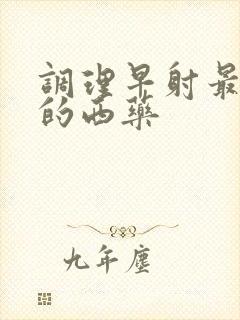 調理早射最
的西藥
九年塵